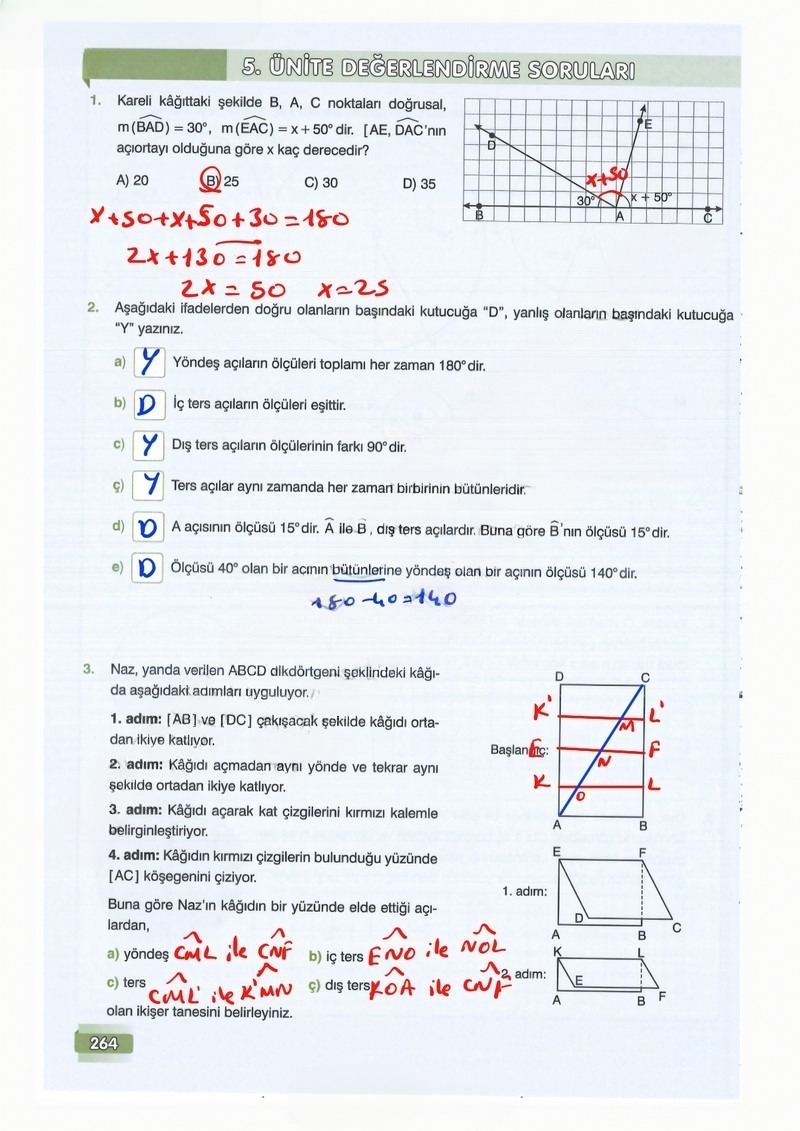 5. ÜNİTE DEĞERLENDİRME SORULARI
1. Kareli kâğıttaki şekilde B, A, C noktaları doğrusal,
m(BAD) = 30°, m(EAC) = x + 50° dir. [AE, DAC'nın
açıortayı olduğuna göre x kaç derecedir?
A) 20 B) 25 C) 30 D) 35
D E
x+50
30° x + 50°
B A C
x+50+x+50+30=180
2x+130=180
2x=50 x=25
2. Aşağıdaki ifadelerden doğru olanların başındaki kutucuğa "D", yanlış olanların başındaki kutucuğa
"Y" yazınız.
a) Y Yöndeş açıların ölçüleri toplamı her zaman 180° dir.
b) D İç ters açıların ölçüleri eşittir.
c) Y Dış ters açıların ölçülerinin farkı 90° dir.
ç) Y Ters açılar aynı zamanda her zaman birbirinin bütünleridir.
d) D A açısının ölçüsü 15° dir. A ile B, dış ters açılardır. Buna göre B'nın ölçüsü 15° dir.
e) D Ölçüsü 40° olan bir açının bütünlerine yöndeş olan bir açının ölçüsü 140° dir.
180-40=140
3. Naz, yanda verilen ABCD dikdörtgeni şeklindeki kâğı-
da aşağıdaki adımları uyguluyor.
1. adım: [AB] ve [DC] çakışacak şekilde kâğıdı orta-
dan ikiye katlıyor.
2. adım: Kâğıdı açmadan aynı yönde ve tekrar aynı
şekilde ortadan ikiye katlıyor.
3. adım: Kâğıdı açarak kat çizgilerini kırmızı kalemle
belirginleştiriyor.
4. adım: Kâğıdın kırmızı çizgilerin bulunduğu yüzünde
[AC] köşegenini çiziyor.
Buna göre Naz'ın kâğıdın bir yüzünde elde ettiği açı-
lardan,
a) yöndeş CML ile CNF b) iç ters ENO ile NOL
c) ters CML' ile K'MN ç) dış ters KOA ile CNF
olan ikişer tanesini belirleyiniz.
D C
K' L'
M
Başlangıç: E F
N
K L
O
A B
E F
1. adım:
D C
A B
K L
2. adım:
E
A B F
264